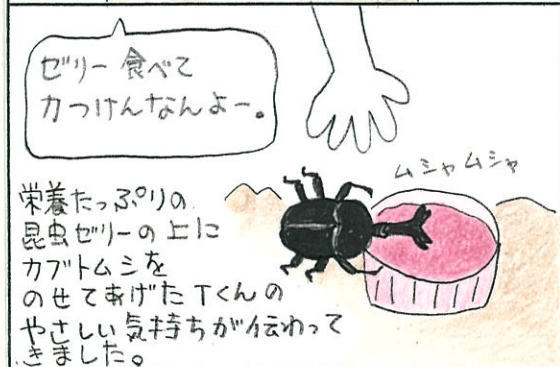 ゼリー食べて
力つけんなんよー。
ムシャムシャ
栄養たっぷりの
昆虫ゼリーの上に
カブトムシを
のせてあげたTくんの
やさしい気持ちが伝わって
きました。